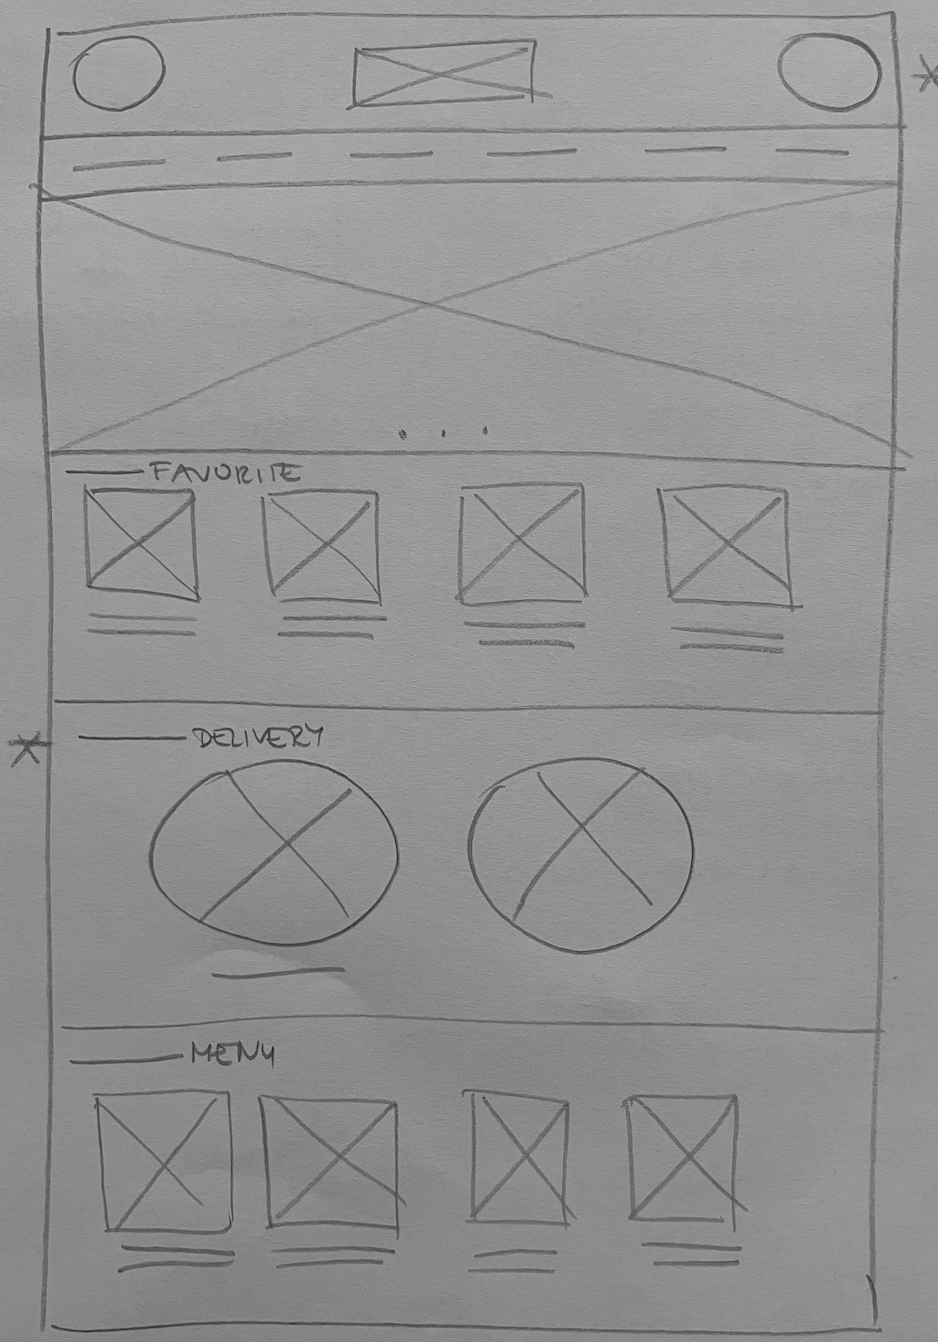 FAVORITE
DELIVERY
MENY